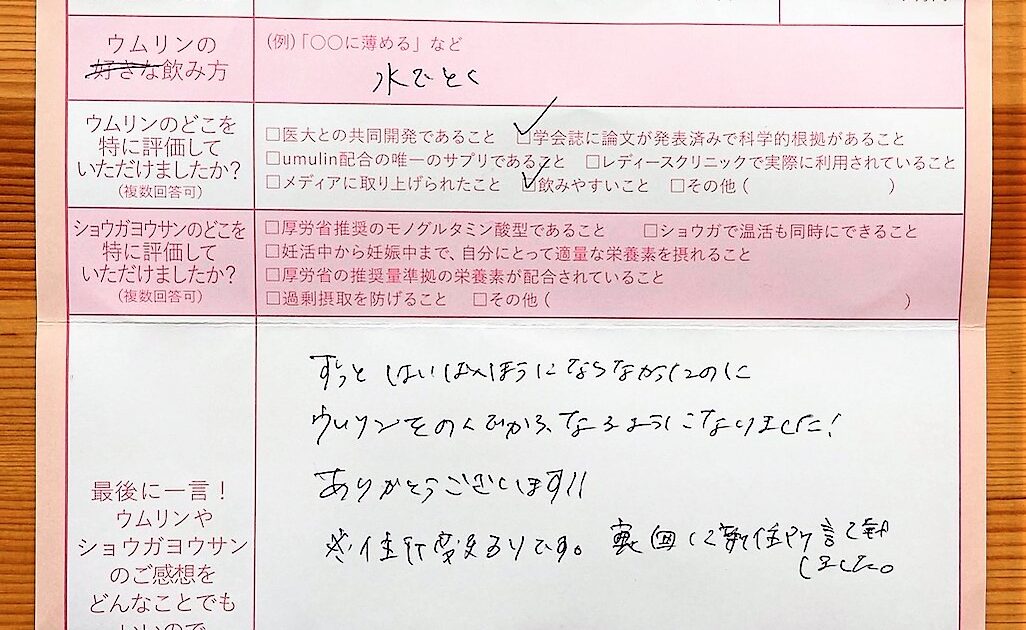 ウムリンの
好きな飲み方
(例)「○○に薄める」など
水でとく
ウムリンのどこを
特に評価して
いただけましたか?
(複数回答可)
□医大との共同開発であること ☑学会誌に論文が発表済みで科学的根拠があること
□umulin配合の唯一のサプリであること □レディースクリニックで実際に利用されていること
□メディアに取り上げられたこと ☑飲みやすいこと □その他( )
ショウガヨウサンのどこを
特に評価して
いただけましたか?
(複数回答可)
□厚労省推奨のモノグルタミン酸型であること □ショウガで温活も同時にできること
□妊活中から妊娠中まで、自分にとって適量な栄養素を摂れること
□厚労省の推奨量準拠の栄養素が配合されていること
□過剰摂取を防げること □その他( )
ずっと はいばんほうにならなかったのに
ウムリンをのんでから、なるようになりました!
ありがとうございます!!
です。 裏面に新住所
しました。
最後に一言!
ウムリンや
ショウガヨウサン
のご感想を
どんなことでも
いいので